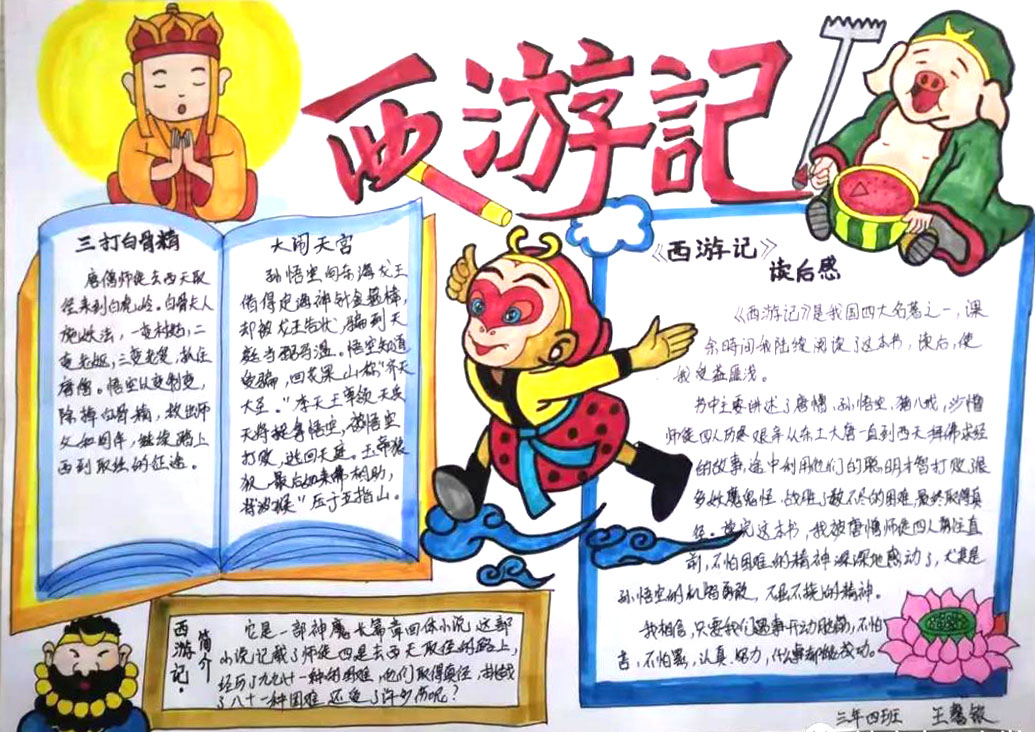 西游記
三打白骨精
唐僧师徒去西天取
经来到白虎岭。白骨夫人
施妖法，一变村姑，二
变老妪，三变老叟，抓住
唐僧。悟空以变制变，
除掉白骨精，救出师
父如同伴，继续踏上
西到取经的征途。
大闹天宫
孙悟空向东海龙王
借得定海神针金箍棒，
却被龙王告状，骗到天
庭当弼马温。悟空知道
受骗，回花果山称"齐天
大圣。"李天王率领天兵
天将捉拿悟空，被悟空
打败，逃回天庭。玉帝
最后如来佛相助，
猴"压于五指山。
《西游记》
读后感
《西游记》是我国四大名著之一，课
余时间我陆续阅读了这本书，读后，使
我受益匪浅。
书中主要讲述了唐僧，孙悟空，猪八戒，沙僧
师徒四人历艰艰辛从东土大唐一直到西天拜佛求经
的故事，途中利用他们的聪明才智打败了很
多妖魔鬼怪，战胜了数不尽的困难，最终取得真
经。读完这本书，我被唐僧师徒四人勇往直
前，不怕困难的精神深深地感动了，尤其是
孙悟空的机智勇敢，不屈不挠的精神。
我相信，只要我们遇事开动脑筋，不怕
苦，不怕累，认真、努力，什么事都能成功。
西游记·
简介
它是一部神魔长篇章回体小说，这部
小说记载了师徒四是去西天取经的路上，
经历了九九八十一种的困难，他们取得真经，
了八十一种困难，还受了许多伤呢？
三年四班 王馨